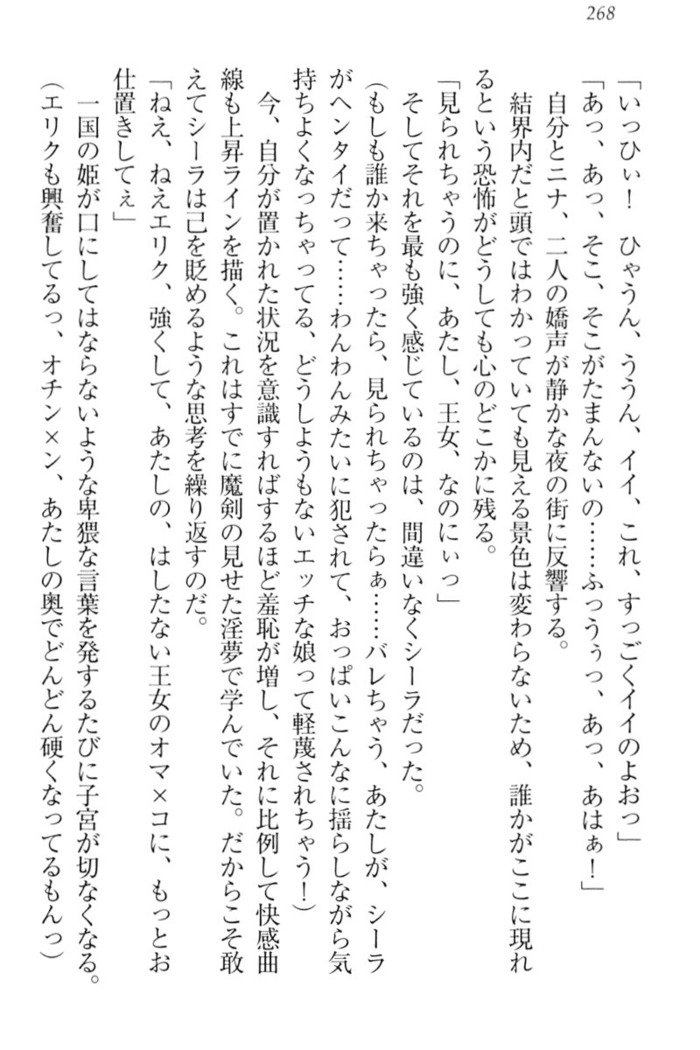 268
「いっひぃ！　ひゃうん、ううん、イイ、これ、すっごくイイのよおっ」
「あっ、あっ、そこ、そこがたまんないの……ふっうぅっ、あっ、あはぁ！」
自分とニナ、二人の嬌声が静かな夜の街に反響する。
結界内だと頭ではわかっていても見える景色は変わらないため、誰かがここに現れ
るという恐怖がどうしても心のどこかに残る。
「見られちゃうのに、あたし、王女、なのにぃっ」
そしてそれを最も強く感じているのは、間違いなくシーラだった。
（もしも誰か来ちゃったら、見られちゃったらぁ……バレちゃう、あたしが、シーラ
がヘンタイだって……わんわんみたいに犯されて、おっぱいこんなに揺らしながら気
持ちよくなっちゃってる、どうしようもないエッチな娘って軽蔑されちゃう！）
今、自分が置かれた状況を意識すればするほど羞恥が増し、それに比例して快感曲
線も上昇ラインを描く。これはすでに魔剣の見せた淫夢で学んでいた。だからこそ敢
えてシーラは己を貶めるような思考を繰り返すのだ。
「ねえ、ねえエリク、強くして、あたしの、はしたない王女のオマ×コに、もっとお
仕置きしてぇ」
一国の姫が口にしてはならないような卑猥な言葉を発するたびに子宮が切なくなる。
（エリクも興奮してるっ、オチン×ン、あたしの奥でどんどん硬くなってるもんっ）